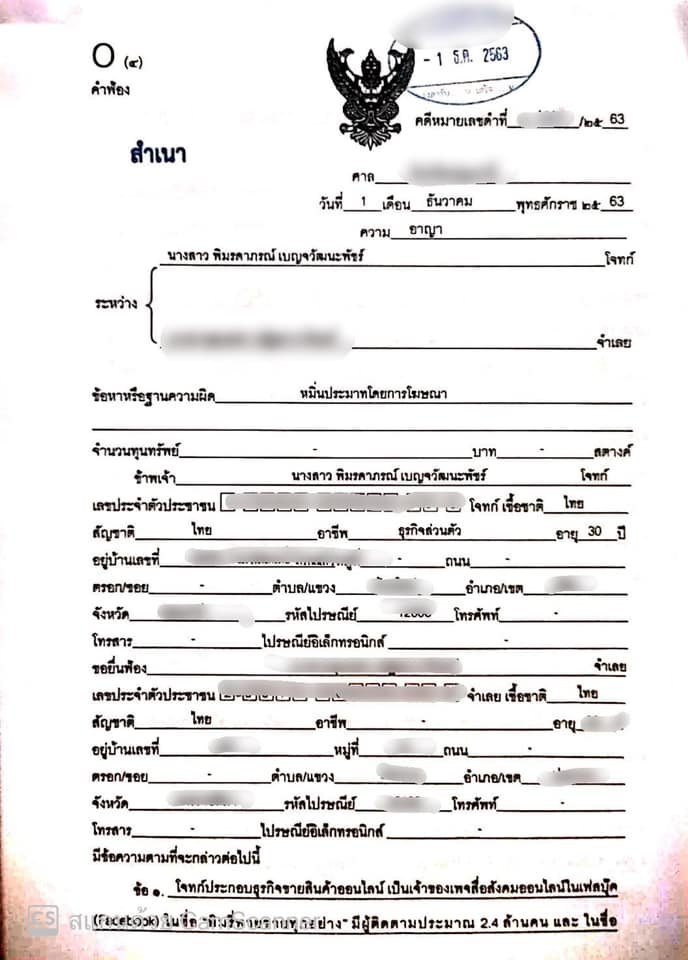 O (๔)
- 1 ธ.ค. 2563
คำฟ้อง
คดีหมายเลขดำที่ /๒๕ 63
สำเนา
ศาล
วันที่ 1 เดือน ธันวาคม พุทธศักราช ๒๕ 63
ความ อาญา
นางสาว พิมรดาภรณ์ เบญจวัฒนะพัชร์ โจทก์
ระหว่าง
จำเลย
ข้อหาหรือฐานความผิด หมิ่นประมาทโดยการโฆษณา
จำนวนทุนทรัพย์ - บาท - สตางค์
ข้าพเจ้า นางสาว พิมรดาภรณ์ เบญจวัฒนะพัชร์ โจทก์
เลขประจำตัวประชาชน โจทก์ เชื้อชาติ ไทย
สัญชาติ ไทย อาชีพ ธุรกิจส่วนตัว อายุ 30 ปี
อยู่บ้านเลขที่ - ถนน -
ตรอก/ซอย - ตำบล/แขวง อำเภอ/เขต
จังหวัด รหัสไปรษณีย์ โทรศัพท์ -
โทรสาร - ไปรษณีย์อิเล็กทรอนิกส์ -
ขอยื่นฟ้อง จำเลย
เลขประจำตัวประชาชน จำเลย เชื้อชาติ ไทย
สัญชาติ ไทย อาชีพ - อายุ
อยู่บ้านเลขที่ หมู่ที่ ถนน -
ตรอก/ซอย - ตำบล/แขวง อำเภอ/เขต
จังหวัด รหัสไปรษณีย์ โทรศัพท์ -
โทรสาร - ไปรษณีย์อิเล็กทรอนิกส์ -
มีข้อความตามที่จะกล่าวต่อไปนี้
ข้อ ๑. โจทก์ประกอบธุรกิจขายสินค้าออนไลน์ เป็นเจ้าของเพจสื่อสังคมออนไลน์ในเฟสบุ๊ค
(Facebook) ในชื่อ "พิมรี่พายขายทุกอย่าง" มีผู้ติดตามประมาณ 2.4 ล้านคน และ ในชื่อ
CS สแกนด้วย CamScanner